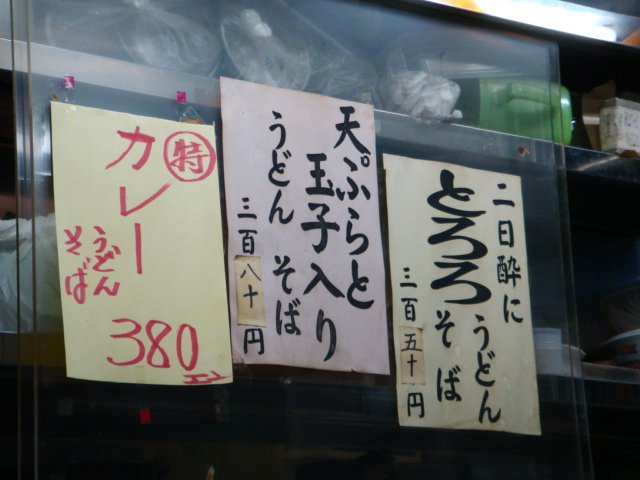 ㊕カレー
うどん
そば
380円
天ぷらと
玉子入り
うどん そば
三百八十円
二日酔に
とろろ
うどん
そば
三百五十円